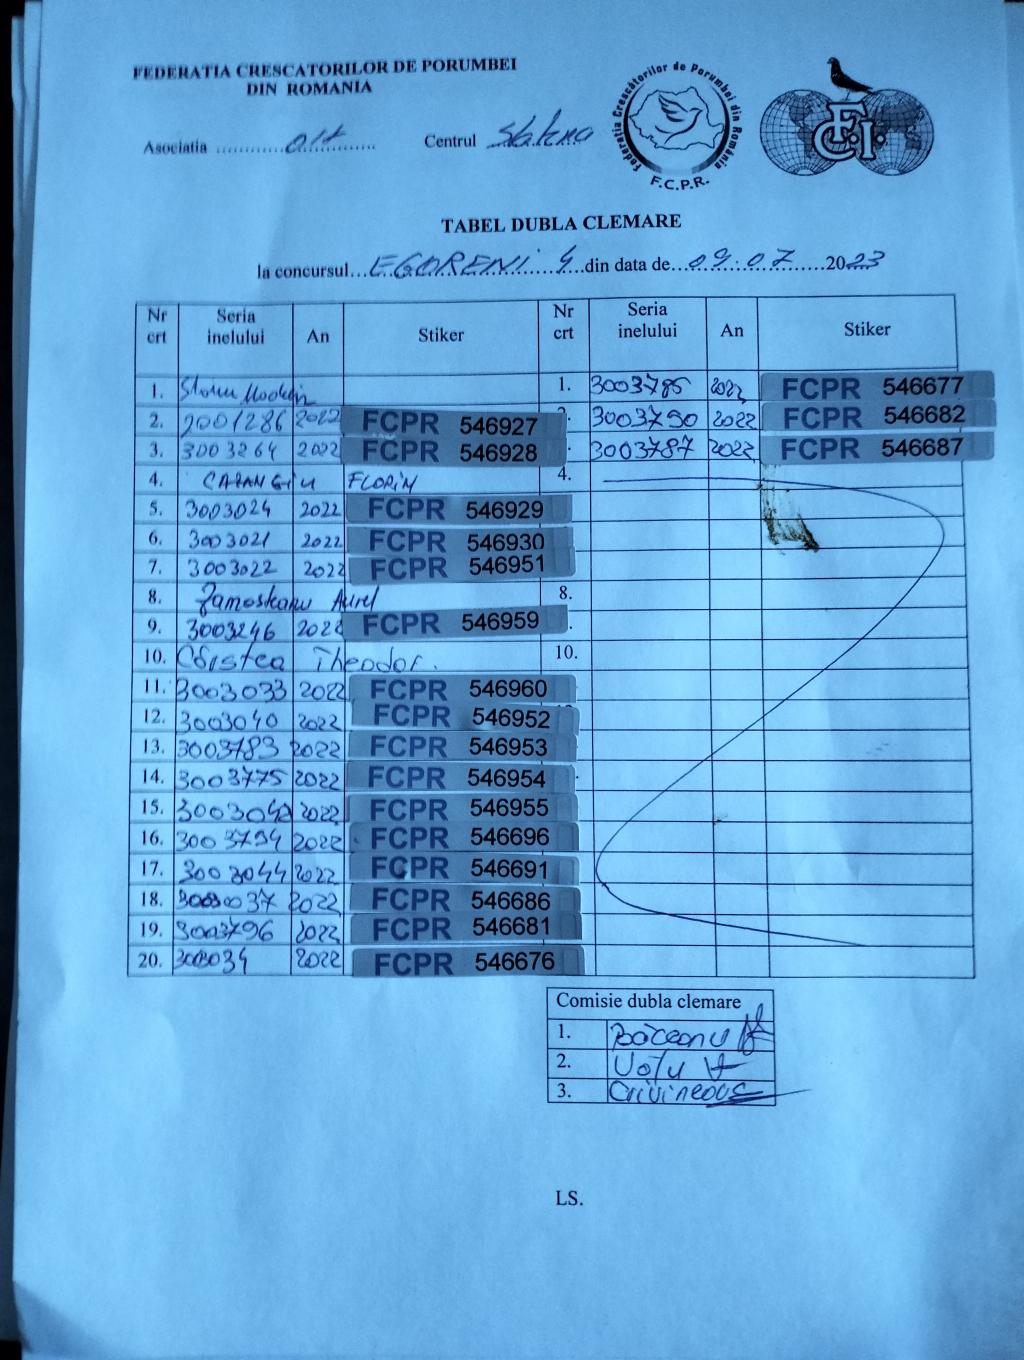 FEDERATIA CRESCATORILOR DE PORUMBEI
DIN ROMANIA
Asociatia ............Olt............... Centrul Slatina
Federatia Crescătorilor de Porumbei din România
F.C.P.R.
F.C.I.
TABEL DUBLA CLEMARE
la concursul...EGORENI 4...din data de...09.07.......2023
Nr crt Seria inelului An Stiker Nr crt Seria inelului An Stiker
1. 1. 3003785 2022 FCPR 546677
2. 2001286 2022 FCPR 546927 3003790 2022 FCPR 546682
3. 3003264 2022 FCPR 546928 3003787 2022 FCPR 546687
4. FLORIN 4.
5. 3003024 2022 FCPR 546929
6. 3003021 2022 FCPR 546930
7. 3003022 2022 FCPR 546951
8. Zamosteanu Aurel 8.
9. 3003246 2022 FCPR 546959
10. Cristea Theodor. 10.
11. 3003033 2022 FCPR 546960
12. 3003040 2022 FCPR 546952
13. 3003783 2022 FCPR 546953
14. 3003775 2022 FCPR 546954
15. 3003042 2022 FCPR 546955
16. 3003794 2022 FCPR 546696
17. 3003044 2022 FCPR 546691
18. 3003037 2022 FCPR 546686
19. 3003796 2022 FCPR 546681
20. 2022 FCPR 546676
Comisie dubla clemare
1. Băceanu
2.
3. Crivineous
LS.